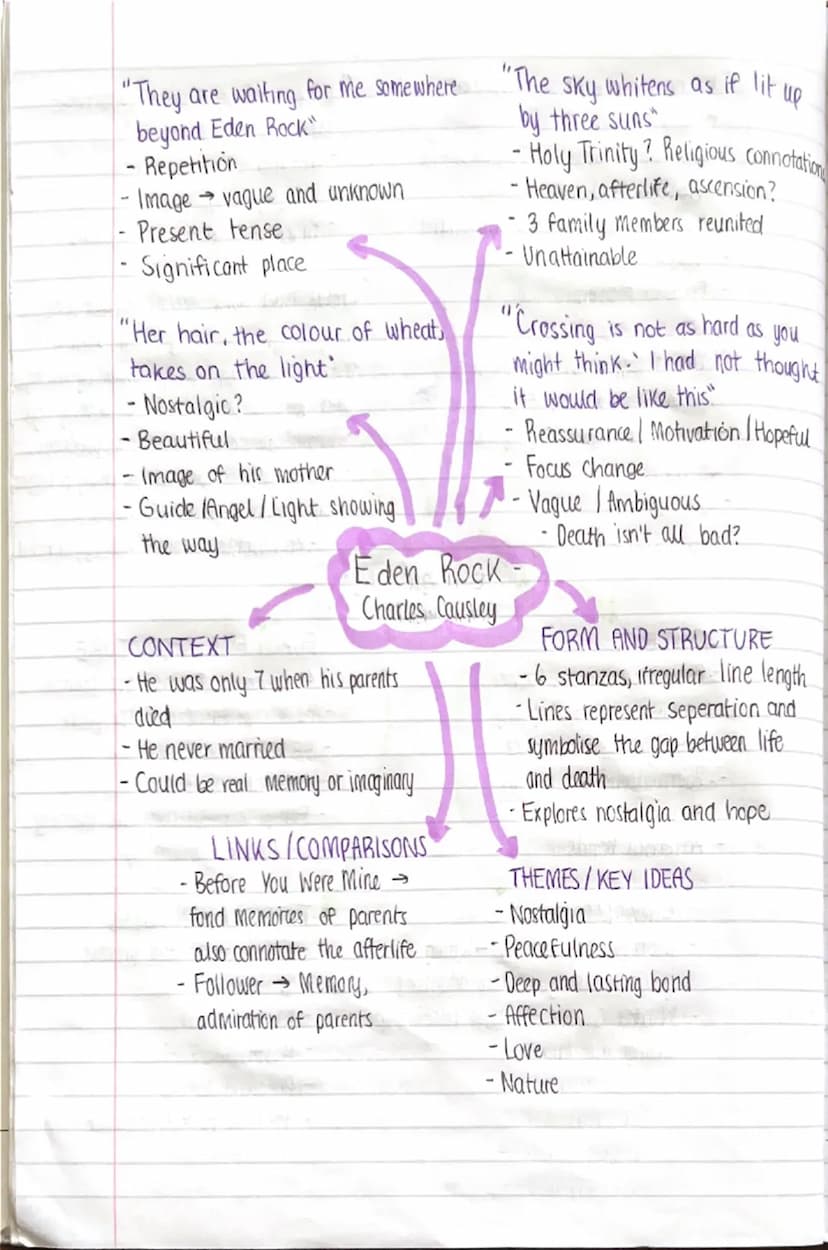 "They are waiting for me somewhere
beyond Eden Rock"
- Repetition
- Image → vague and unknown
- Present tense
- Significant place
"The sky whitens as if lit up
by three suns"
- Holy Trinity? Religious connotations
- Heaven, afterlife, ascension?
- 3 family members reunited
- Unattainable
"Her hair, the colour of wheat,
takes on the light"
- Nostalgic?
- Beautiful
- Image of his mother
- Guide/Angel/Light showing
the way
"Crossing is not as hard as you
might think.' I had not thought
it would be like this"
- Reassurance/Motivation/Hopeful
- Focus change
- Vague/Ambiguous
- Death isn't all bad?
Eden Rock -
Charles Causley
CONTEXT
- He was only 7 when his parents
died
- He never married
- Could be real memory or imaginary
FORM AND STRUCTURE
- 6 stanzas, irregular line length
- Lines represent seperation and
symbolise the gap between life
and death
- Explores nostalgia and hope
LINKS/COMPARISONS
- Before You Were Mine →
fond memories of parents
also connotate the afterlife
- Follower → Memory,
admiration of parents
THEMES/KEY IDEAS
- Nostalgia
- Peacefulness
- Deep and lasting bond
- Affection
- Love
- Nature